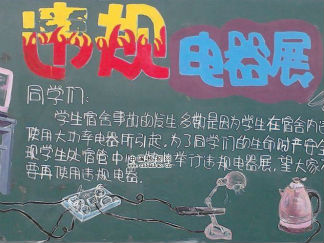 违规电器展
同学们:
学生宿舍事故的发生多数是因为学生在宿舍内违
使用大功率电器所引起,为了同学们的生命财产安全
现学生处宿管中心举行违规电器展,望大家不
要再使用违规电器.